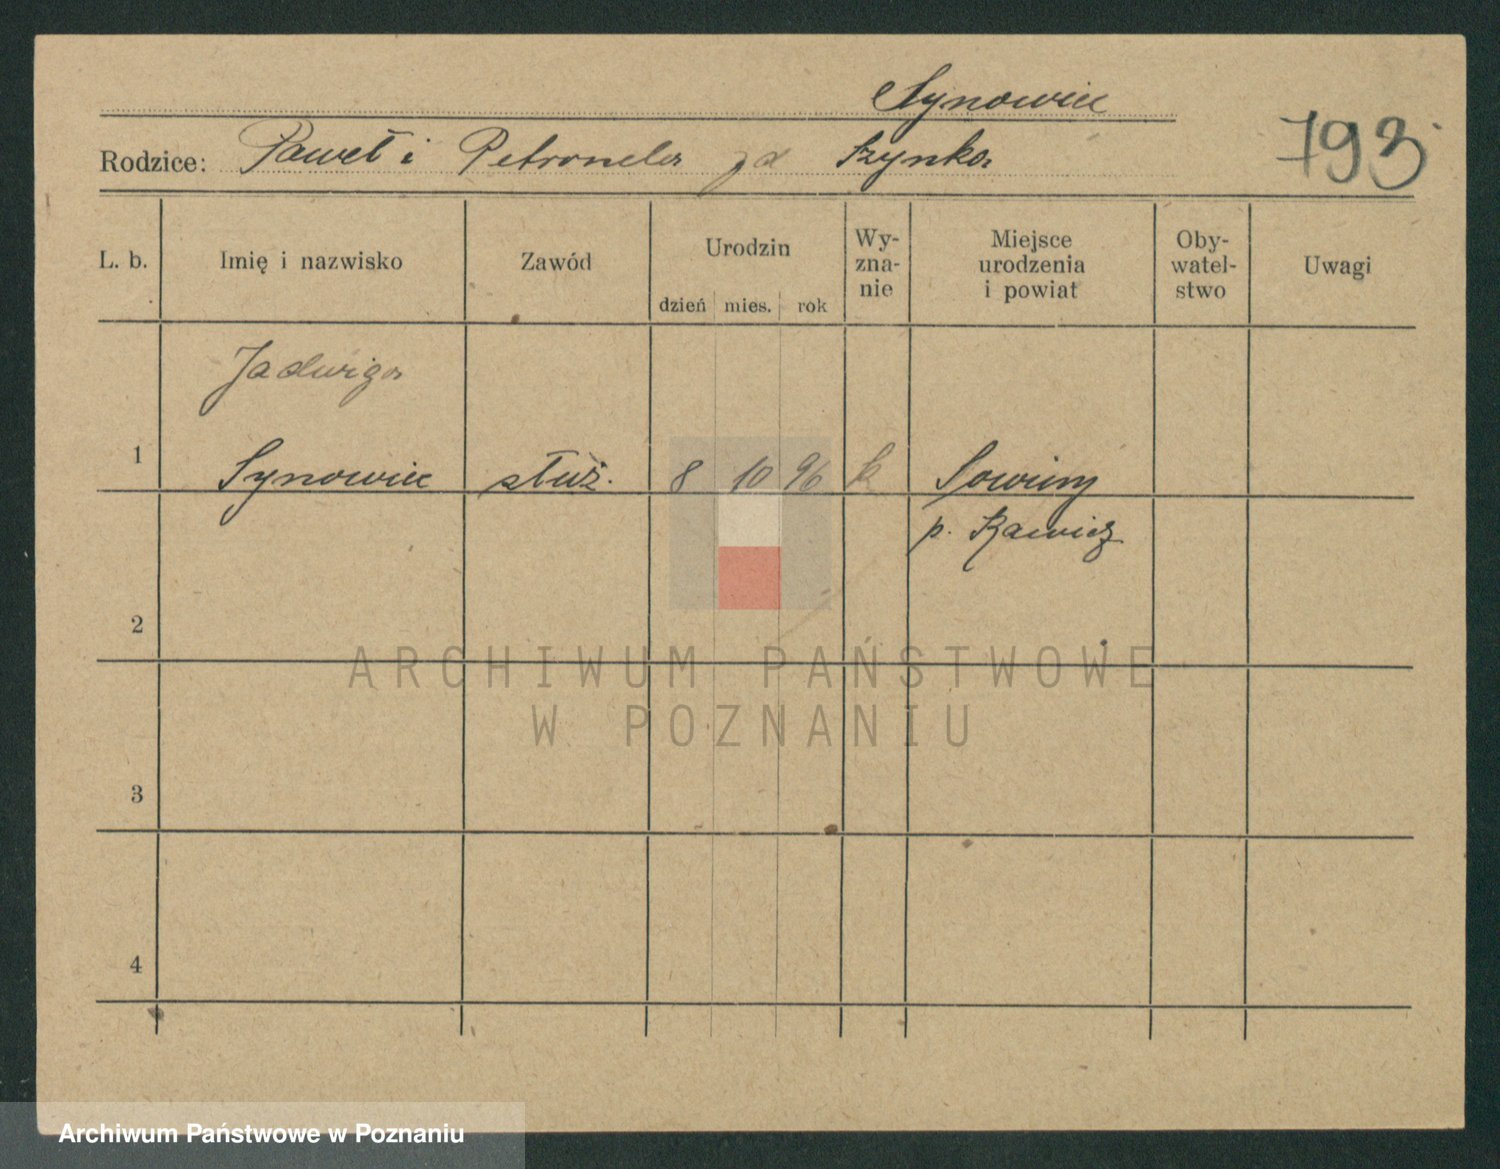 Synowiec
Rodzice: Paweł i Petronela zd Szynka
793
L. b. Imię i nazwisko Zawód Urodzin dzień mies. rok Wy-zna-nie Miejsce urodzenia i powiat Oby-watel-stwo Uwagi
Jadwiga
1 Synowiec służ. 8 10 96 k Sowiny
p. Rawicz
2
3
4
ARCHIWUM PAŃSTWOWE
W POZNANIU
Archiwum Państwowe w Poznaniu